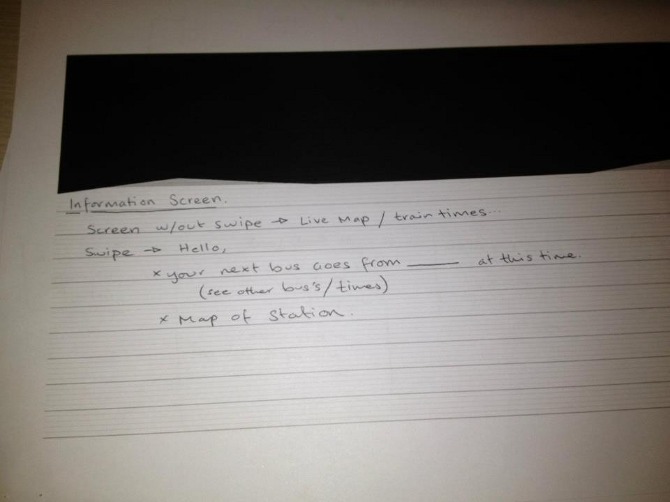 Information Screen.
Screen w/out swipe → Live Map / train times...
Swipe → Hello,
× your next bus goes from _____ at this time.
(see other bus's/times)
× Map of Station.